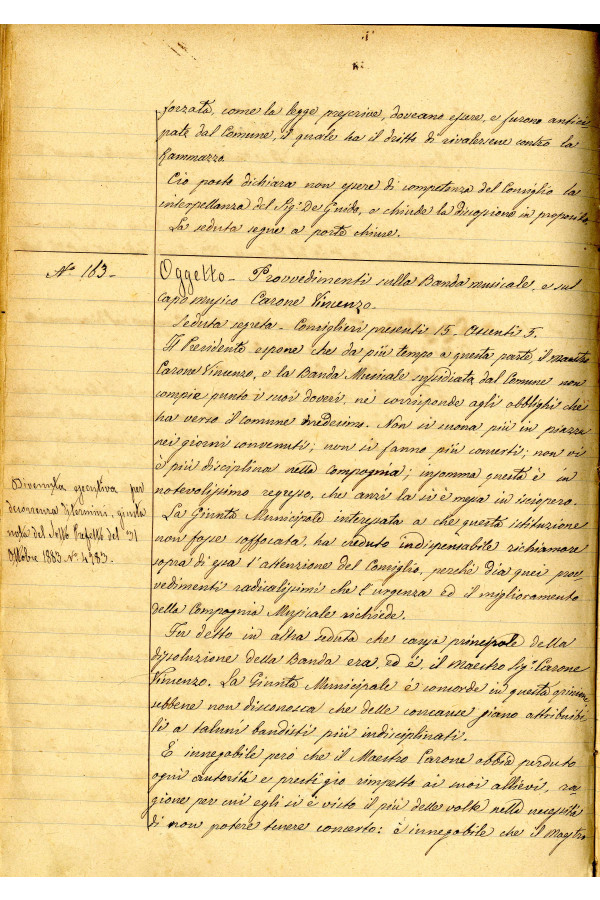 forzata, come la legge prescrive, doveano essere, e furono antici
pate dal Comune, il quale ha il dritto di rivalersene contro la
Rammazzo
Ciò posto dichiara non essere di competenza del Consiglio la
interpellanza del Sigr De Guido, e chiude la discussione in proposito.
La seduta segue a porte chiuse.
No 163 -
Oggetto - Provvedimenti sulla Banda musicale, e sul
capo musico Carone Vincenzo.
Seduta segreta - Consiglieri presenti 15 - Assenti 5.
Il Presidente espone che da più tempo a questa parte il maestro
Carone Vincenzo, e la Banda Musicale sussidiata dal Comune non
compie punto i suoi doveri, nè corrisponde agli obblighi che
ha verso il comune medesimo. Non si suona più in piazza
nei giorni convenuti; non si fanno più concerti; non vi
è più disciplina nella Compagnia; insomma questa è in
notevolissimo regresso, che anzi la si è messa in isciopero.
La Giunta Municipale interessata a che questa istituzione
non fosse soffocata, ha creduto indispensabile richiamare
sopra di essa l'attenzione del Consiglio, perchè dia quei prov
vedimenti radicalissimi che l'urgenza ed il miglioramento
della Compagnia Musicale richiede.
Divenuta esecutiva per
decorrenza di termini, giusta
nota del Sotto Prefetto del 31
Ottobre 1883 No 4983.
Fu detto in altra seduta che causa principale della
dissoluzione della Banda era, ed è, il Maestro Sigr Carone
Vincenzo. La Giunta Municipale è concorde in questa opinione
sebbene non disconosca che delle concause siano attribuibi
li a taluni bandisti più indisciplinati.
È innegabile però che il Maestro Carone abbia perduto
ogni autorità e prestigio rimpetto ai suoi allievi, ra
gione per cui egli si è visto il più delle volte nella necessità
di non potere tenere concerto: è innegabile che il Maestro